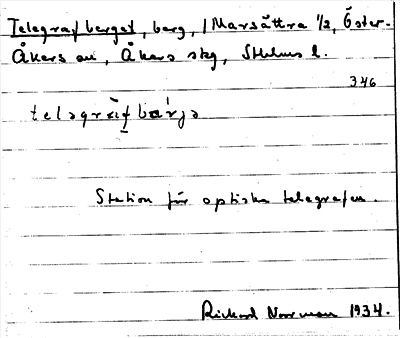 Telegrafberget, berg, / Marsättra 1/2, Öster-
Åkers sn, Åkers skg, Sthlms l.
346
Station för optiska telegrafen.
Rickard Norrman 1934.